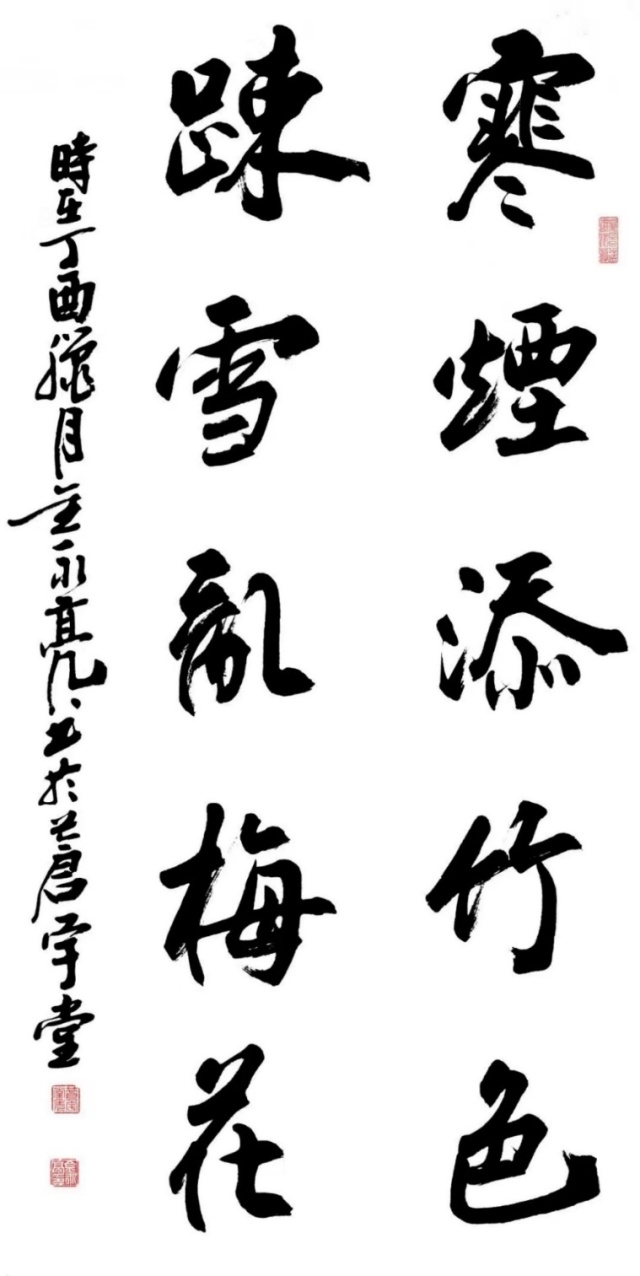 寒煙添竹色
踈雪亂梅花
時在丁酉臘月金永亮書於蒼宇堂